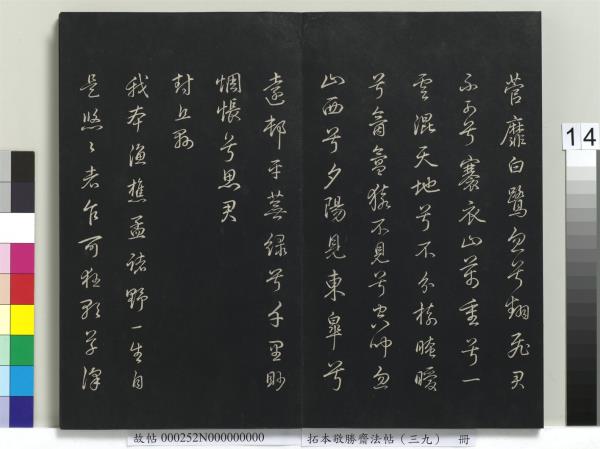 菅靡白鷺忽兮翻飛君
不可兮褰衣山萬重兮一
雲混天地兮不分樹晻曖
兮氛氳猿不見兮空聞忽
山西兮夕陽見東皐兮
遠邨平蕪綠兮千里眇
惆悵兮思君
封丘縣
我本漁樵孟諸野一生自
是悠々者乍可狂歌草澤
14
故帖 000252N000000000
拓本敬勝齋法帖（三九） 冊